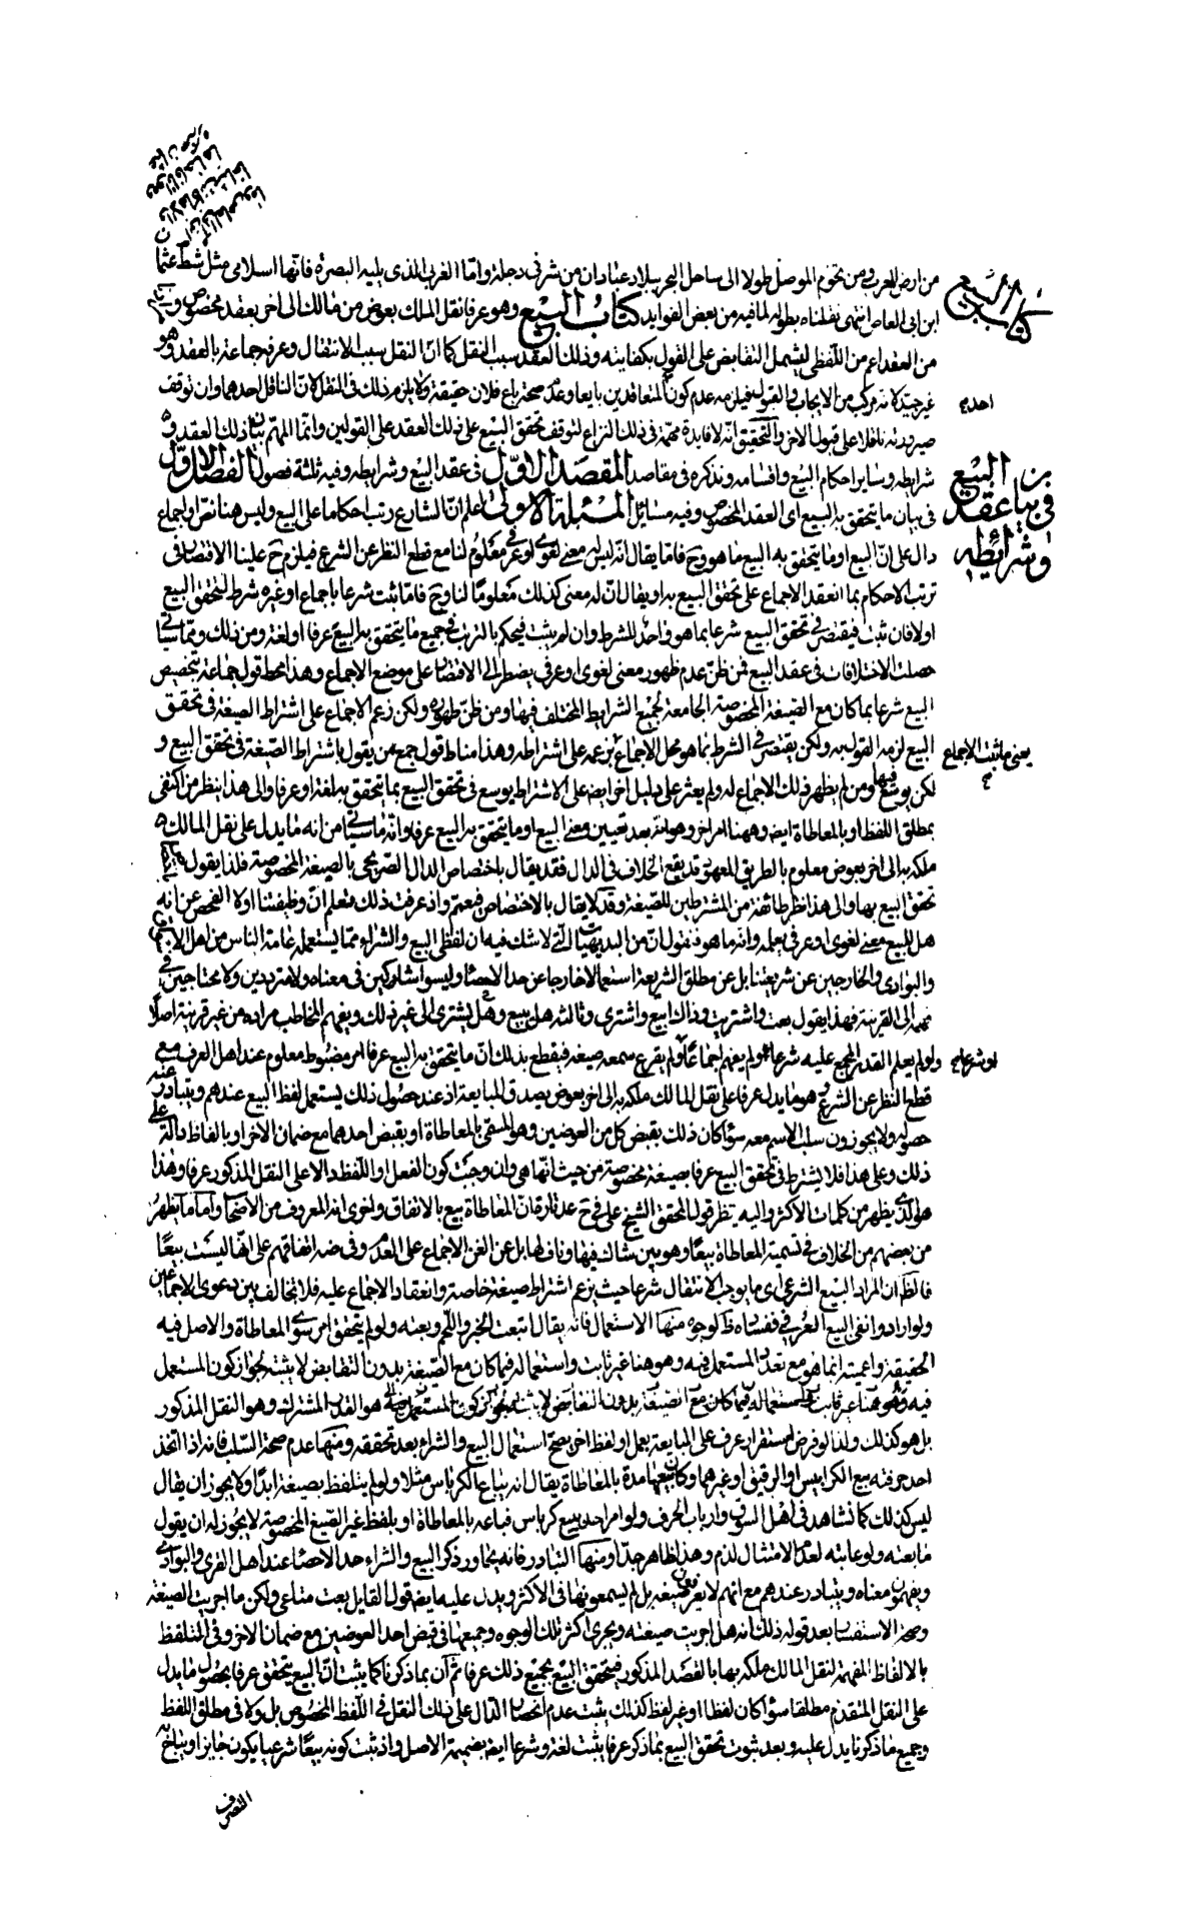 من ارض العرب ومن تخوم الموصل طولا الى ساحل البحر ببلاد عبادان من شرقي دجلة واما الغربي الذي يليه البصرة فانها اسلامي مثل شط عثمان
ابن ابي العاص انتهى نقلناه بطوله لما فيه من بعض الفوايد كتاب البيع وهو عرفا نقل الملك بعوض من مالك الى اخر بعقد مخصوص
من العقد اعم من اللفظي ليشمل التقابض على القول بكفايته وذلك العقد سبب النقل كما ان النقل سبب الانتقال وعرفه جماعة بالعقد وهو
غير جيد لانه مركب من الايجاب والقبول فيلزمه عدم كون المتعاقدين بايعا وعدم صحة باع فلان حقيقة ولا يلزم ذلك في النقل لان الناقل احدهما وان توقف
صيرورته ناقلا على قبول الاخر والتحقيق انه لا فايدة مهمة في ذلك النزاع لتوقف تحقق البيع على ذلك العقد على القولين وانما المهم بيان ذلك العقد و
شرايطه وساير احكام البيع واقسامه ونذكره في مقاصد المقصد الاول في عقد البيع وشرايطه وفيه ثلثة فصول الفصل الاول
في بيان ما يتحقق به البيع اى العقد المخصوص وفيه مسائل المسئلة الاولى اعلم ان الشارع رتب احكاما على البيع وليس هنا نص او اجماع
دال على ان البيع او ما يتحقق به البيع ما هو وح فاما يقال انه ليس له معنى لغوي او عرفي معلوم لنا مع قطع النظر عن الشرع فيلزم ح علينا الاقتصار في
ترتب الاحكام بما انعقد الاجماع على تحقق البيع به او يقال ان له معنى كذلك معلوما لنا وح فاما ثبت شرعا باجماع او غيره شرط لتحقق البيع
او لا فان ثبت فيقتصر في تحقق البيع شرعا بما هو واجد للشرط وان لم يثبت فيحكم بالترتب في جميع ما يتحقق به البيع عرفا او لغة ومن ذلك ومما سياتي
حصلت الاختلافات في عقد البيع فمن ظن عدم ظهور معنى لغوي او عرفي يضطر الى الاقتصار على موضع الاجماع وهذا محط قول جماعة بتخصيص
البيع شرعا بما كان مع الصيغة المخصوصة الجامعة لجميع الشرايط المختلف فيها ومن ظن ظهوره ولكن زعم الاجماع على اشتراط الصيغة في تحقق
البيع لزمه القول به ولكن يقتصر في الشرط بما هو محل الاجماع بزعمه على اشتراطه وهذا مناط قول جمع من يقول باشتراط الصيغة في تحقق البيع و
لكن يوسع فيها ومن لم يظهر ذلك الاجماع له ولم يعثر على دليل اخر ايض على الاشتراط يوسع في تحقق البيع بما يتحقق به لغة او عرفا والى هذا ينظر من اكتفى
بمطلق اللفظ او بالمعاطاة ايض وههنا امر اخر وهو انه بعد تعيين معنى البيع او ما يتحقق به البيع عرفا وانه ما سياتي من انه ما يدل على نقل المالك
ملكه به الى اخر بعوض معلوم بالطريق المعهود قد يقع الخلاف في الدال فقد يقال باختصاص الدال الصريحي بالصيغة المخصوصة فلذا يقول
تحقق البيع بها والى هذا نظر طائفة من المشترطين للصيغة وقد لا يقال بالاختصاص فيعمم واذ عرفت ذلك فنعلم ان وظيفتنا اولا الفحص عن انه
هل للبيع معنى لغوي او عرفي يعلم وانه ما هو فنقول ان من البديهيات التي لا شك فيه ان لفظي البيع والشراء مما يستعمله عامة الناس من اهل
والبوادي والخارجين عن شريعتنا بل عن مطلق الشريعة استعمالا خارجا عن حد الاحصاء وليسوا شاكين في معناه ولا مترددين ولا محتاجين في
فهمه الى القرينة فهذا يقول بعت واشتريت وذاك ابيع واشترى وثالثه هل يبيع وهل يشترى الى غير ذلك ويفهم المخاطب مراده من غير قرينة اصلا
ولو لم يعلم القدر المجمع عليه شرعا ولم يفهم اجماعا ولم يقرع سمعه صيغة فيقطع بذلك ان ما يتحقق به البيع عرفا امر مضبوط معلوم عند اهل العرف مع
قطع النظر عن الشرع وهو ما يدل عرفا على نقل المالك ملكه به الى اخر بعوض يصدق المبايعة اذ عند حصول ذلك يستعمل لفظ البيع عندهم ويتبادر عنه
حصوله ولا يجوزون سلب الاسم معه سواء كان ذلك بقبض كل من العوضين وهو المسمى بالمعاطاة او بقبض احدهما مع ضمان الاخر او بالفاظ دالة على
ذلك وعلى هذا فلا يشترط في تحقق البيع عرفا بصيغة مخصوصة من حيث انها هي وان وجبت كون الفعل او اللفظ دالا على النقل المذكور عرفا وهذا
هو الذي يظهر من كلمات الاكثر واليه ينظر قول المحقق الشيخ علي في شرح عد تارة ان المعاطاة بيع بالاتفاق واخرى انه المعروف من الاصحاب واما ما يظهر
من بعضهم من الخلاف في تسمية المعاطاة بيعا وهو بين شاك فيها وناف لها بل عن الغنية الاجماع على العدم وفي ضه اتفاقهم على انها ليست بيعا
فالظ ان المراد البيع الشرعي اى ما يوجب الانتقال شرعا حيث يزعم اشتراط صيغة خاصة وانعقاد الاجماع عليه فلا تخالف بين دعوى الاجماعين
ولو ارادوا نفي البيع العرفي ففساده ظ لوجوه منها الاستعمال فانه يقال ابتعت الخبز واللحم وبعته ولو لم يتحقق امر سوى المعاطاة والاصل فيه
الحقيقة واعميته انما هو مع تعدد المستعمل فيه وهو هنا غير ثابت واستعماله فيما كان مع الصيغة بدون التقابض لا يثبته لجواز كون المستعمل
فيه وهو هنا غير ثابت واستعماله فيما كان مع الصيغة بدون التقابض لا يثبته لجواز كون المستعمل فيه هو القدر المشترك وهو النقل المذكور
بل هو كذلك ولذا لو فرض استقرار عرف على المبايعة بعمل او لفظ اخر يصح استعمال البيع والشراء بعد تحققه ومنها عدم صحة السلب فانه اذا اتخذ
احد حرفته بيع الكرابيس او الرقيق او غيرهما وكان يبيعها مدة بالمعاطاة يقال انه بياع الكرباس مثلا ولو لم يتلفظ بصيغة ابدا ولا يجوز ان يقال
ليس كذلك كما نشاهد في اهل السوق وارباب الحرف ولو امر احد ببيع كرباس فباعه بالمعاطاة او بلفظ غير الصيغ المخصوصة لا يجوز له ان يقول
ما بعته ولو عاتبه لعدم الامتثال لذم وهذا ظاهر جدا ومنها التبادر فانه يتجاوز ذكر البيع والشراء حد الاحصاء عند اهل القرى والبوادي
ويفهمون معناه ويتبادر عندهم مع انهم لا يعرفون صيغة بل لم يسمعونها في الاكثر ويدل عليه ايضه قول القايل بعت متاعي ولكن ما اجريت الصيغة
وصحة الاستفسار بعد قوله ذلك انه هل اجريت صيغته ويجرى اكثر تلك الوجوه وجميعها في قبض احد العوضين مع ضمان الاخر وفي التلفظ
بالالفاظ المفهمة لنقل المالك ملكه بها بالقصد المذكور فيتحقق البيع بجميع ذلك عرفا ثم ان بما ذكرنا كما يثبت ان البيع يتحقق عرفا بحصول ما يدل
على النقل المتقدم مطلقا سواء كان لفظا او غير لفظ كذلك يثبت عدم انحصار الدال على ذلك النقل في اللفظ المخصوص بل ولا في مطلق اللفظ
وجميع ما ذكرنا يدل عليه وبعد ثبوت تحقق البيع بما ذكر عرفا يثبت لغة وشرعا ايضه بضميمة الاصل واذ ثبت كونه بيعا شرعيا يكون جايزا ويباح
التصرف
كتاب البيع
احدهم
في بيان عقد البيع
وشرائطه
يعني ما ثبت الاجماع